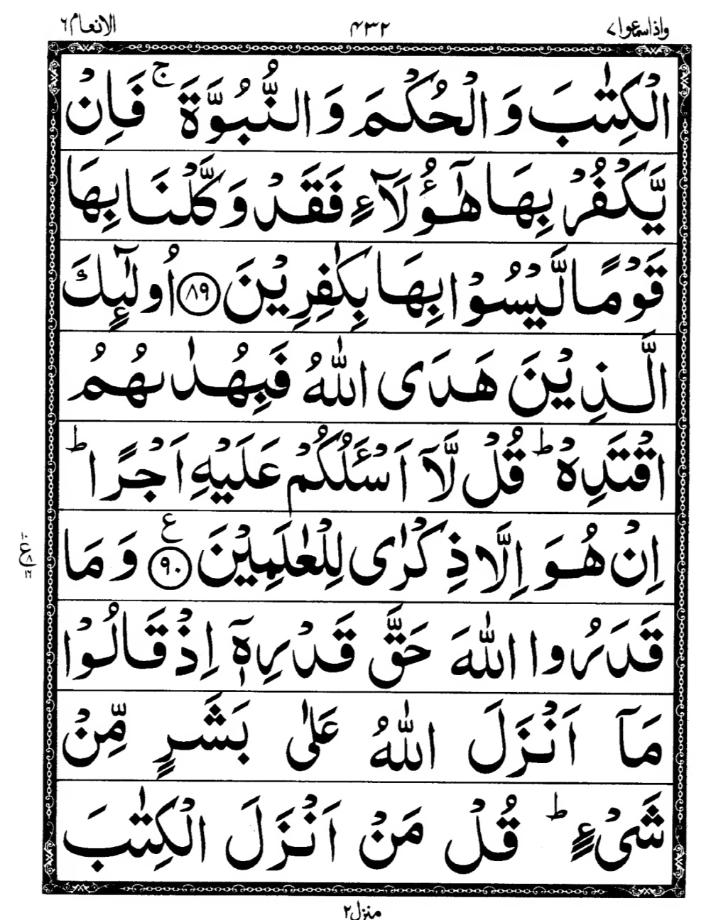 واذاسمعوا ٧ ۴۳۲ الانعام ٦
الْكِتٰبَ وَ الْحُكْمَ وَ النُّبُوَّةَ ۚ فَاِنْ
يَّكْفُرْ بِهَا هٰٓؤُلَآءِ فَقَدْ وَكَّلْنَا بِهَا
قَوْمًا لَّيْسُوْا بِهَا بِكٰفِرِيْنَ ﴿٨٩﴾ اُولٰٓئِكَ
الَّذِيْنَ هَدَى اللّٰهُ فَبِهُدٰىهُمُ
اقْتَدِهْ ؕ قُلْ لَّآ اَسْـَٔلُكُمْ عَلَيْهِ اَجْرًا ؕ
اِنْ هُوَ اِلَّا ذِكْرٰى لِلْعٰلَمِيْنَ ﴿٩٠﴾ ع وَ مَا
قَدَرُوا اللّٰهَ حَقَّ قَدْرِهٖٓ اِذْ قَالُوْا
مَآ اَنْزَلَ اللّٰهُ عَلٰى بَشَرٍ مِّنْ
شَيْءٍ ؕ قُلْ مَنْ اَنْزَلَ الْكِتٰبَ
منزل ٢